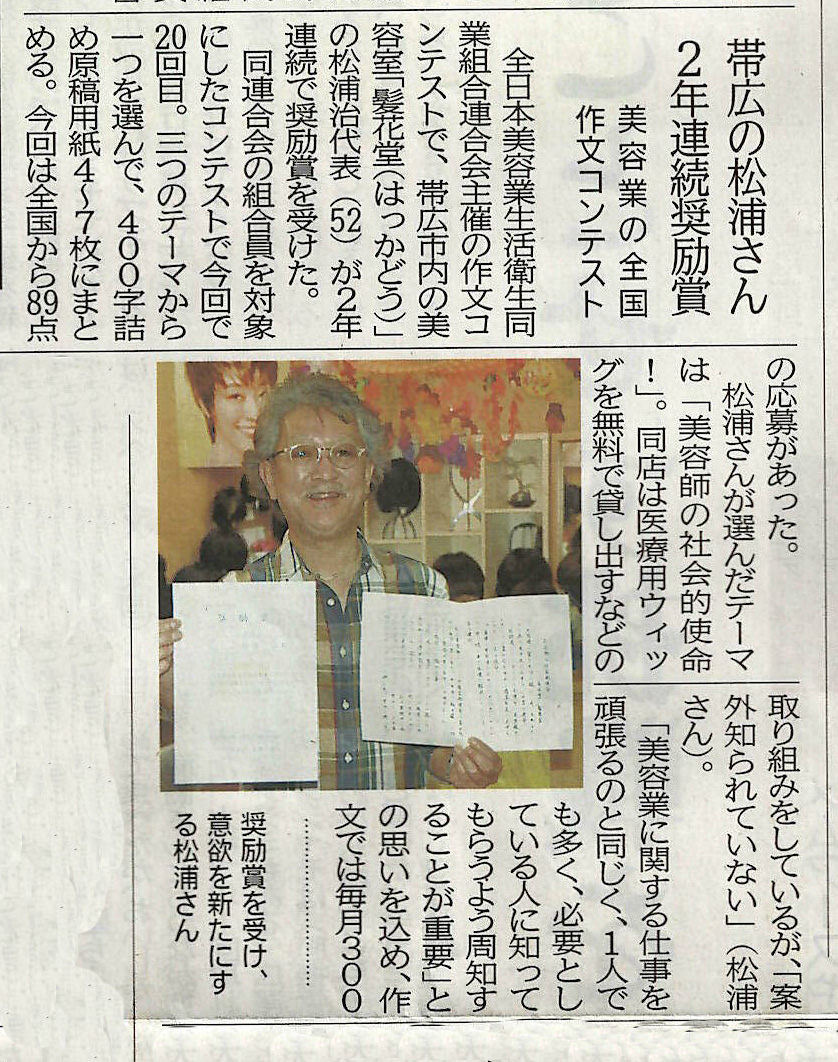 帯広の松浦さん
2年連続奨励賞
美容業の全国
作文コンテスト
全日本美容業生活衛生同
業組合連合会主催の作文コ
ンテストで、帯広市内の美
容室「髪花堂(はっかどう)」
の松浦治代表(52)が2年
連続で奨励賞を受けた。
同連合会の組合員を対象
にしたコンテストで今回で
20回目。三つのテーマから
一つを選んで、400字詰
め原稿用紙4〜7枚にまと
める。今回は全国から89点
の応募があった。
松浦さんが選んだテーマ
は「美容師の社会的使命
!」。同店は医療用ウィッ
グを無料で貸し出すなどの
取り組みをしているが、「案
外知られていない」(松浦
さん)。
「美容業に関する仕事を
頑張るのと同じく、1人で
も多く、必要とし
ている人に知って
もらうよう周知す
ることが重要」と
の思いを込め、作
文では毎月300
奨励賞を受け、
意欲を新たにす
る松浦さん